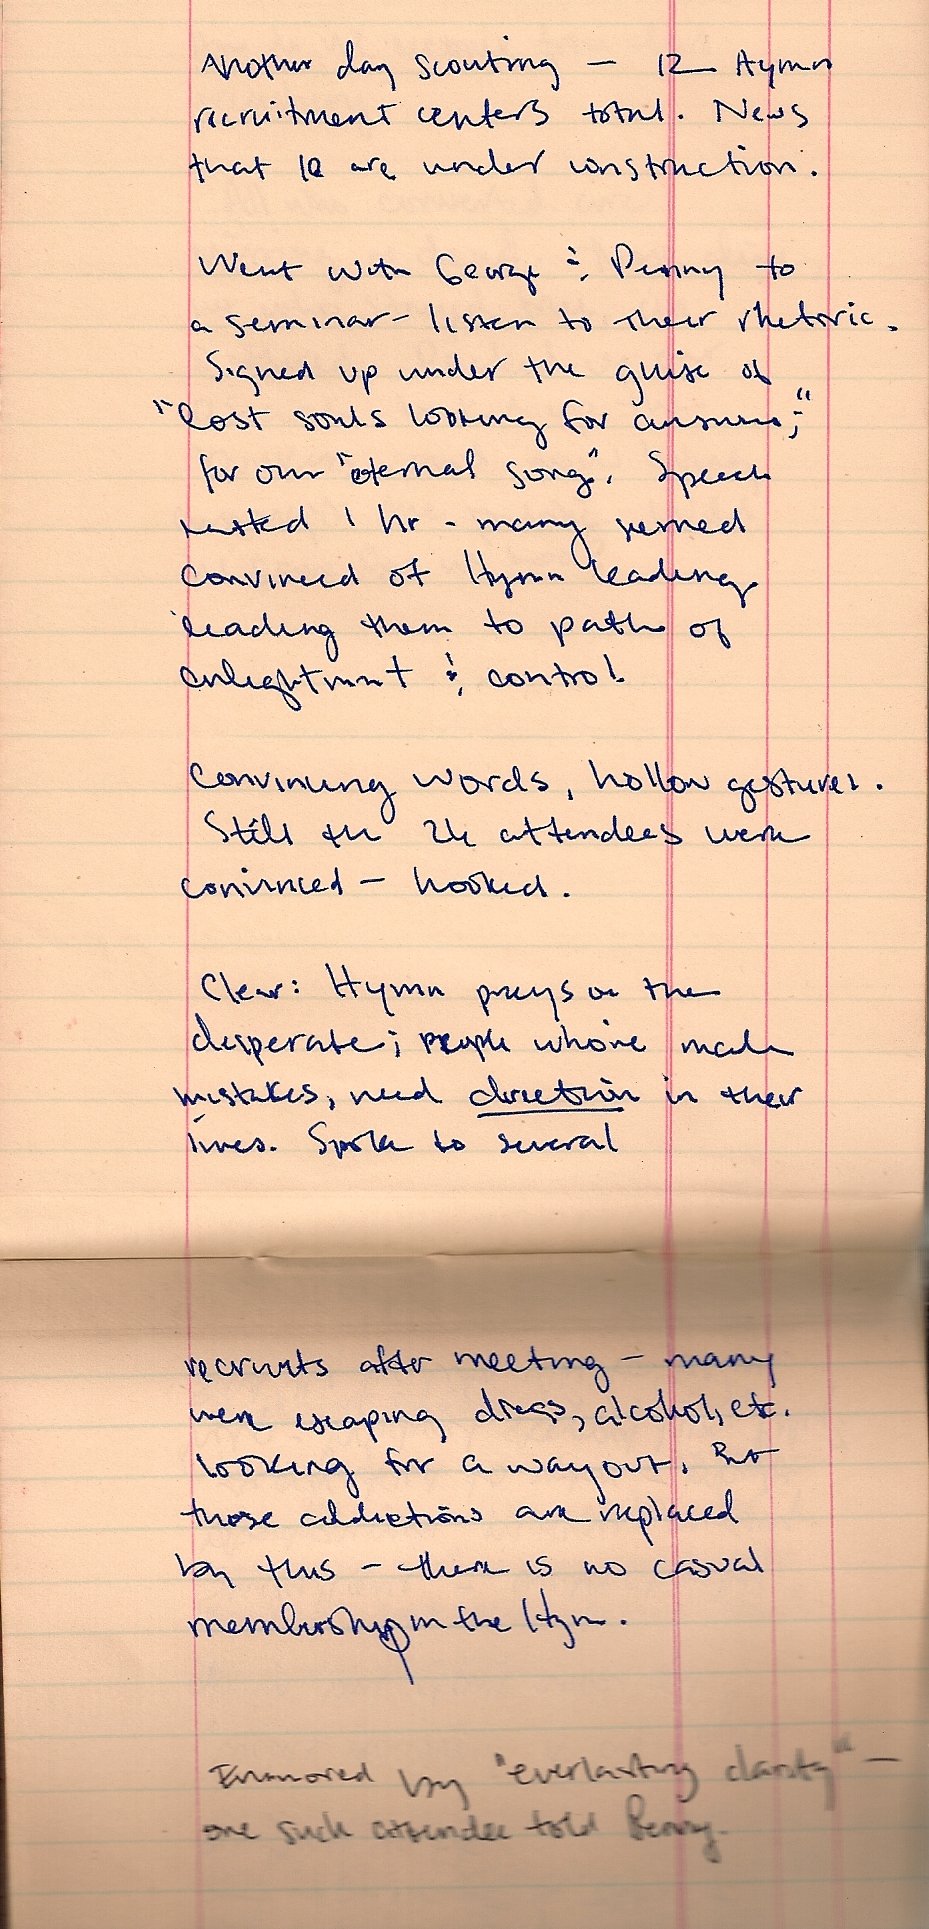 Another day scouting — 12 Hymn
recruitment centers total. News
that 10 are under construction.
Went with George & Penny to
a seminar - listen to their rhetoric.
Signed up under the guise of
"lost souls looking for answers;"
for our "eternal song". Speech
lasted 1 hr - many seemed
convinced of Hymn leading
leading them to path of
enlightment & control.
Convincing words, hollow gestures.
Still the 24 attendees were
convinced — hooked.
Clear: Hymn preys on the
desperate; people who've made
mistakes, need direction in their
lives. Spoke to several
recruits after meeting - many
were escaping drugs, alcohol, etc.
looking for a way out. But
those addictions are replaced
by this - there is no casual
membership in the Hymn.
Enamored by "everlasting clarity" —
one such attendee told Penny.